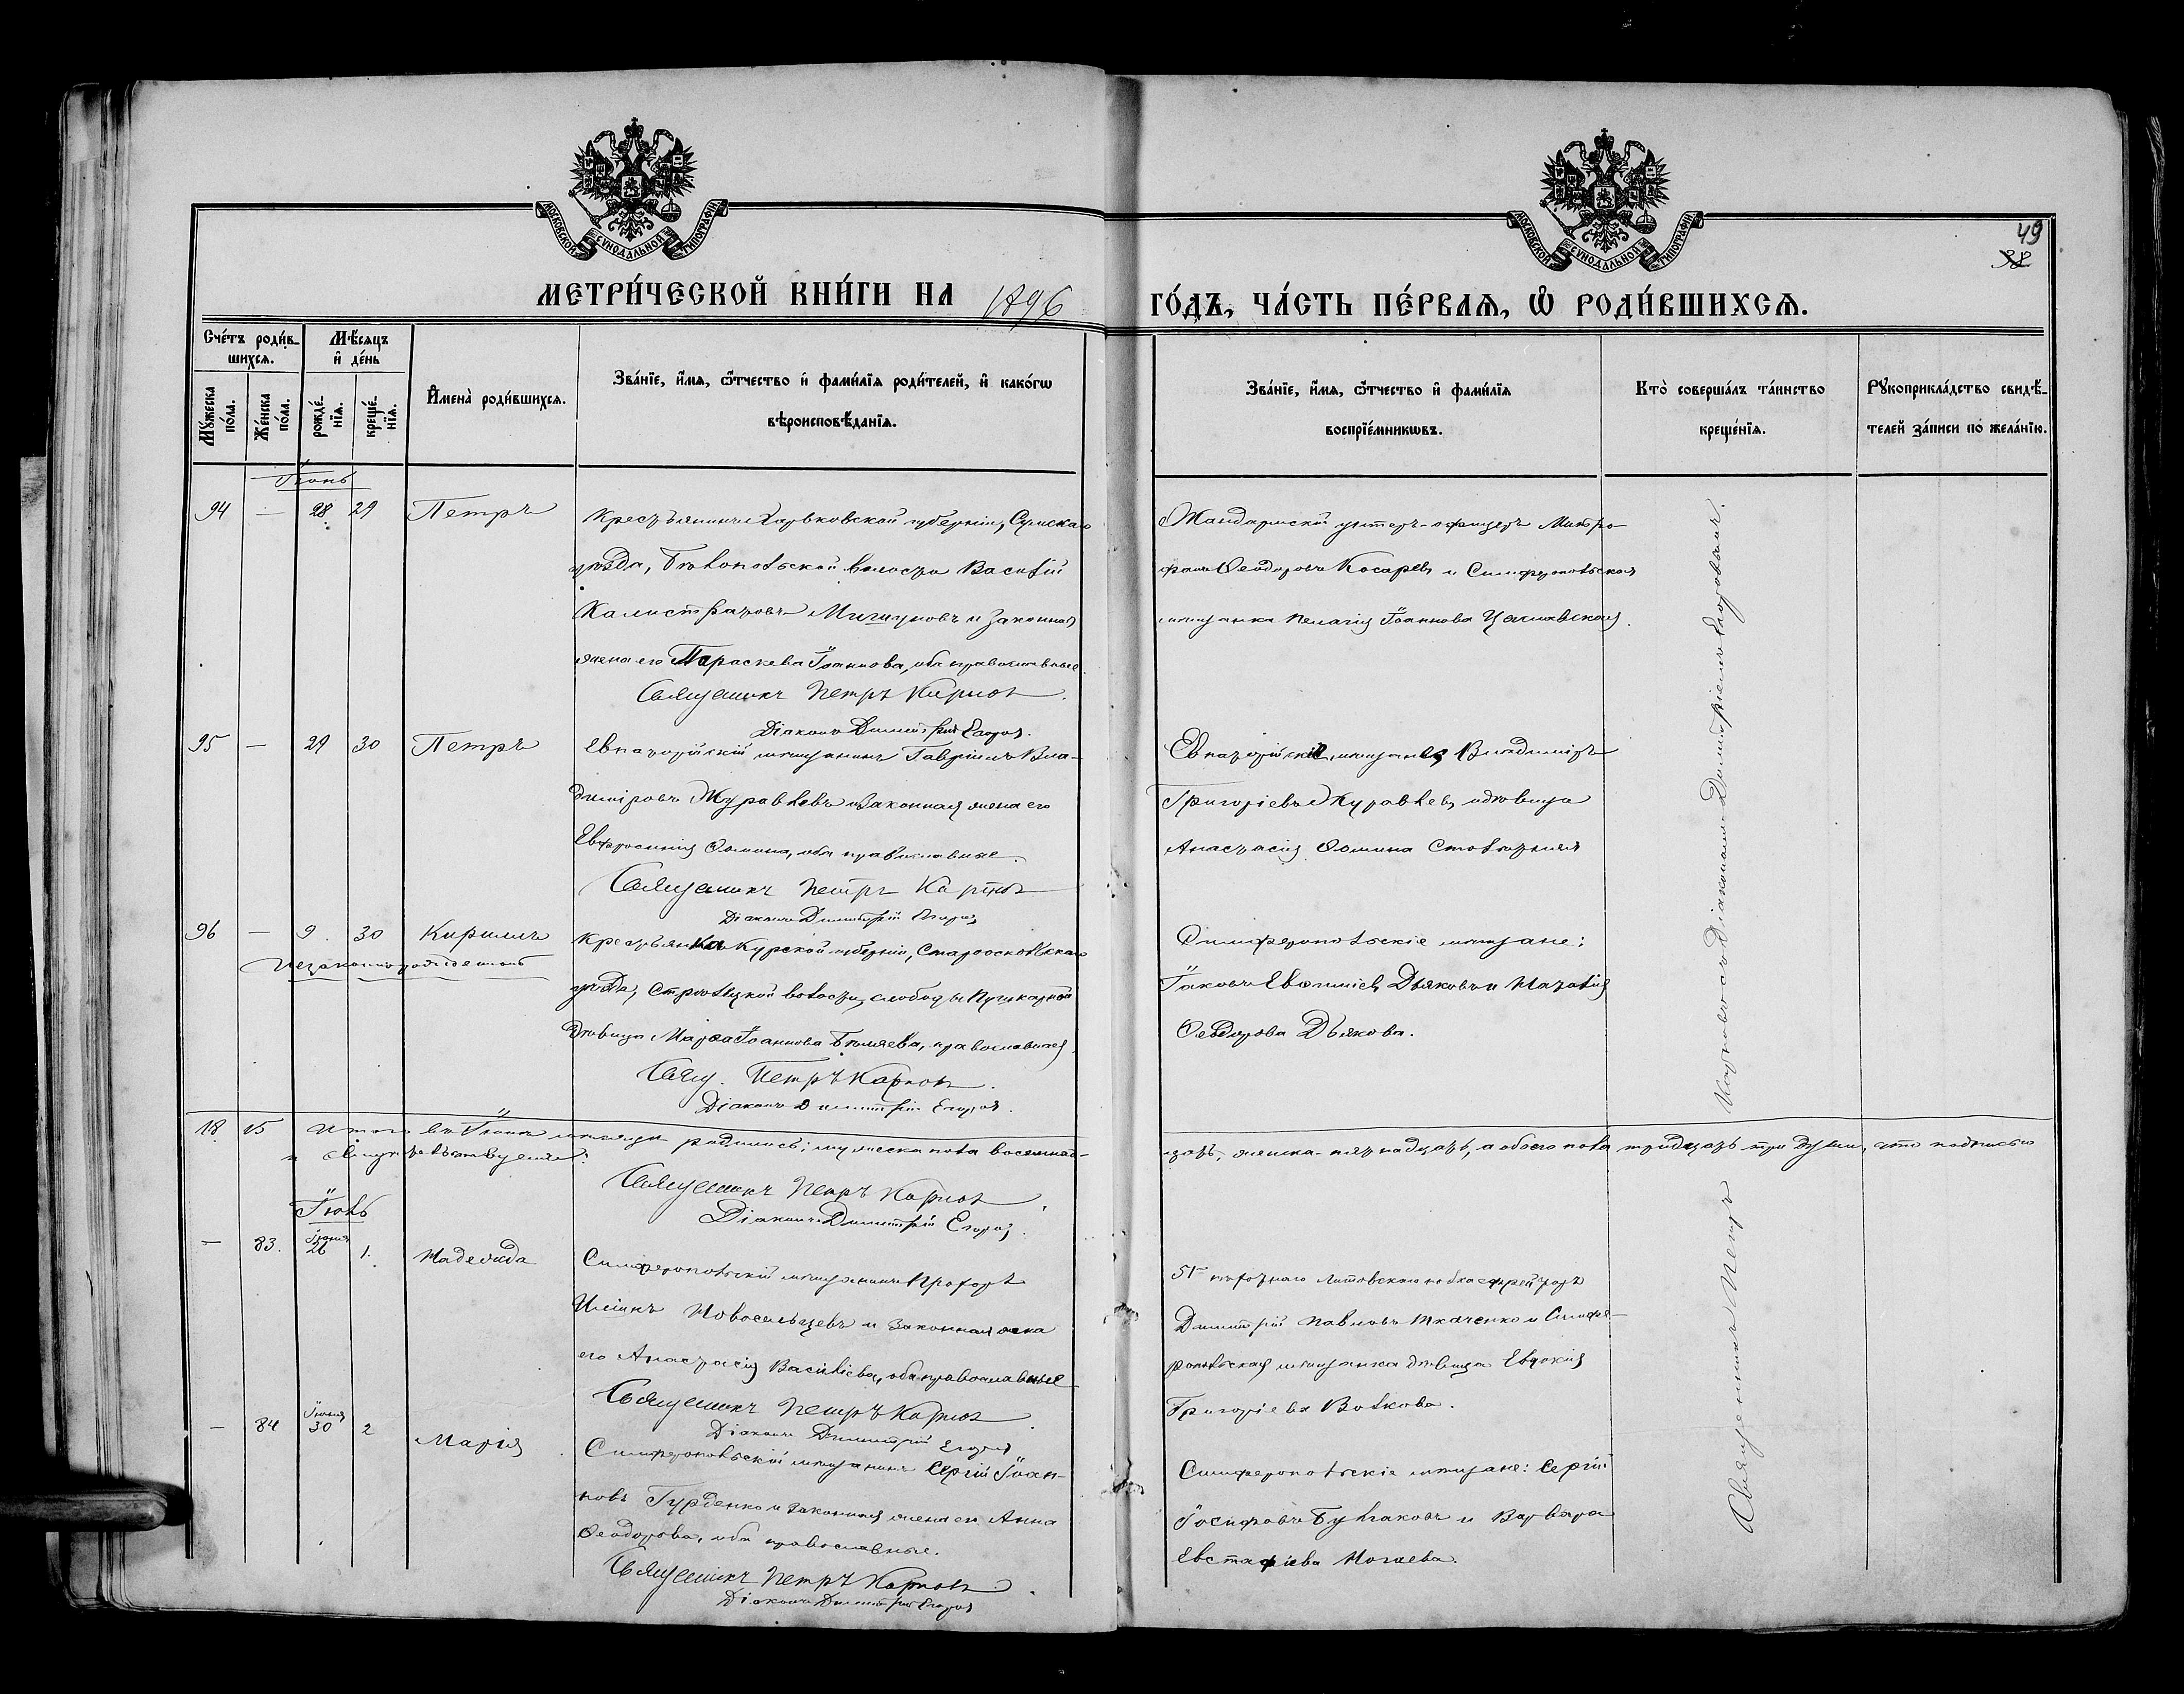 МОСКОВСКОЙ СѴНОДАЛЬНОЙ ТИПОГРАФІИ
МОСКОВСКОЙ СѴНОДАЛЬНОЙ ТИПОГРАФІИ
49
38
МЕТРИ́ЧЕСКОЙ КНИ́ГИ НА 1896 ГО́ДЪ, ЧА́СТЬ ПЕ́РВАѦ, Ѡ҆ РОДИ́ВШИХСѦ.
Сче́тъ роди́в-
шихсѧ.
Мѣ́сѧцъ
и҆ де́нь
Мꙋ́жеска по́ла.
Же́нска по́ла.
рожде́-
нїѧ.
креще́-
нїѧ.
И҆мена̀ роди́вшихсѧ.
Зва́нїе, и҆́мѧ, ѻ҆́тчество и҆ фами́лїѧ роди́телей, и҆ како́гѡ
вѣроисповѣ́данїѧ.
Зва́нїе, и҆́мѧ, ѻ҆́тчество и҆ фами́лїѧ
воспрїе́мникѡвъ.
Кто̀ соверша́лъ та́инство
креще́нїѧ.
Рꙋкоприкла́дство свидѣ́-
телей за́писи по жела́нїю.
Іюнь
94 — 28 29 Петръ
Крестьянинъ Харьковской губерніи, Сумскаго
уѣзда, Бѣлопольской волости Василій
Калистратовъ Мишуновъ и законная
жена его Параскева Іоаннова, оба православные
Священникъ Петръ Карпов
Діаконъ Димитрій Егоров.
Жандармскій унтеръ-офицеръ Митро-
фанъ Ѳеодоровъ Косаревъ и Симферопольская
мѣщанка Пелагія Іоаннова
95 — 29 30 Петръ
Евпаторійскій мѣщанинъ Гавріилъ Вла-
диміровъ Журавлевъ и законная жена его
Евфросинія Ѳомина, оба православные.
Священникъ Петръ Карпов
Діаконъ Димитрій Егоров
Евпаторійскіе мѣщане Владиміръ
Григоріевъ Журавлевъ и дѣвица
Анастасія Ѳомина
96 — 9 30 Кириллъ
Незаконнорожденный
Крестьянка Курской губерніи, Старооскольскаго
уѣзда, Стрѣлецкой волости, слободы Пушкарной
дѣвица Марѳа Іоаннова Бѣляева, православная
Свящ. Петръ Карпов.
Діаконъ Димитрій Егоров.
Симферопольскіе мѣщане:
Іаковъ Евѳиміевъ Дьяковъ и Наталія
Ѳеодорова Дьякова.
Карповъ съ Діакономъ Димитріемъ Егоровымъ.
18 15 Итого въ Іюнѣ мѣсяцѣ родилось: мужеска пола восемнад-
цать, женска-пятнадцать, а обоего пола тридцать три души, что подписью
и свидѣтельствуемъ:
Священникъ Петръ Карпов
Діаконъ Димитрій Егоров.
Іюль
— 83. Іюня 26 1. Надежда
Симферопольскій мѣщанинъ Прохоръ
Новосельцевъ и законная жена
его Анастасія Василіева, оба православные
Священникъ Петръ Карпов
Діаконъ Димитрій Егоров
51го пѣхотнаго Литовскаго полка ефрейторъ
Димитрій Павловъ Ткаченко и Симфе-
ропольская мѣщанка дѣвица Евдокія
Григоріева Волкова.
— 84 Іюня 30 2 Марія
Симферопольскій мѣщанинъ Сергій Іоан-
новъ Гурденко и законная жена его Анна
Ѳеодорова, оба православные.
Священникъ Петръ Карпов
Діаконъ Димитрій Егоров
Симферопольскіе мѣщане: Сергій
Іосифовъ Булгаковъ и Варвара
Евстафіева Ногаева.
Священникъ Петръ